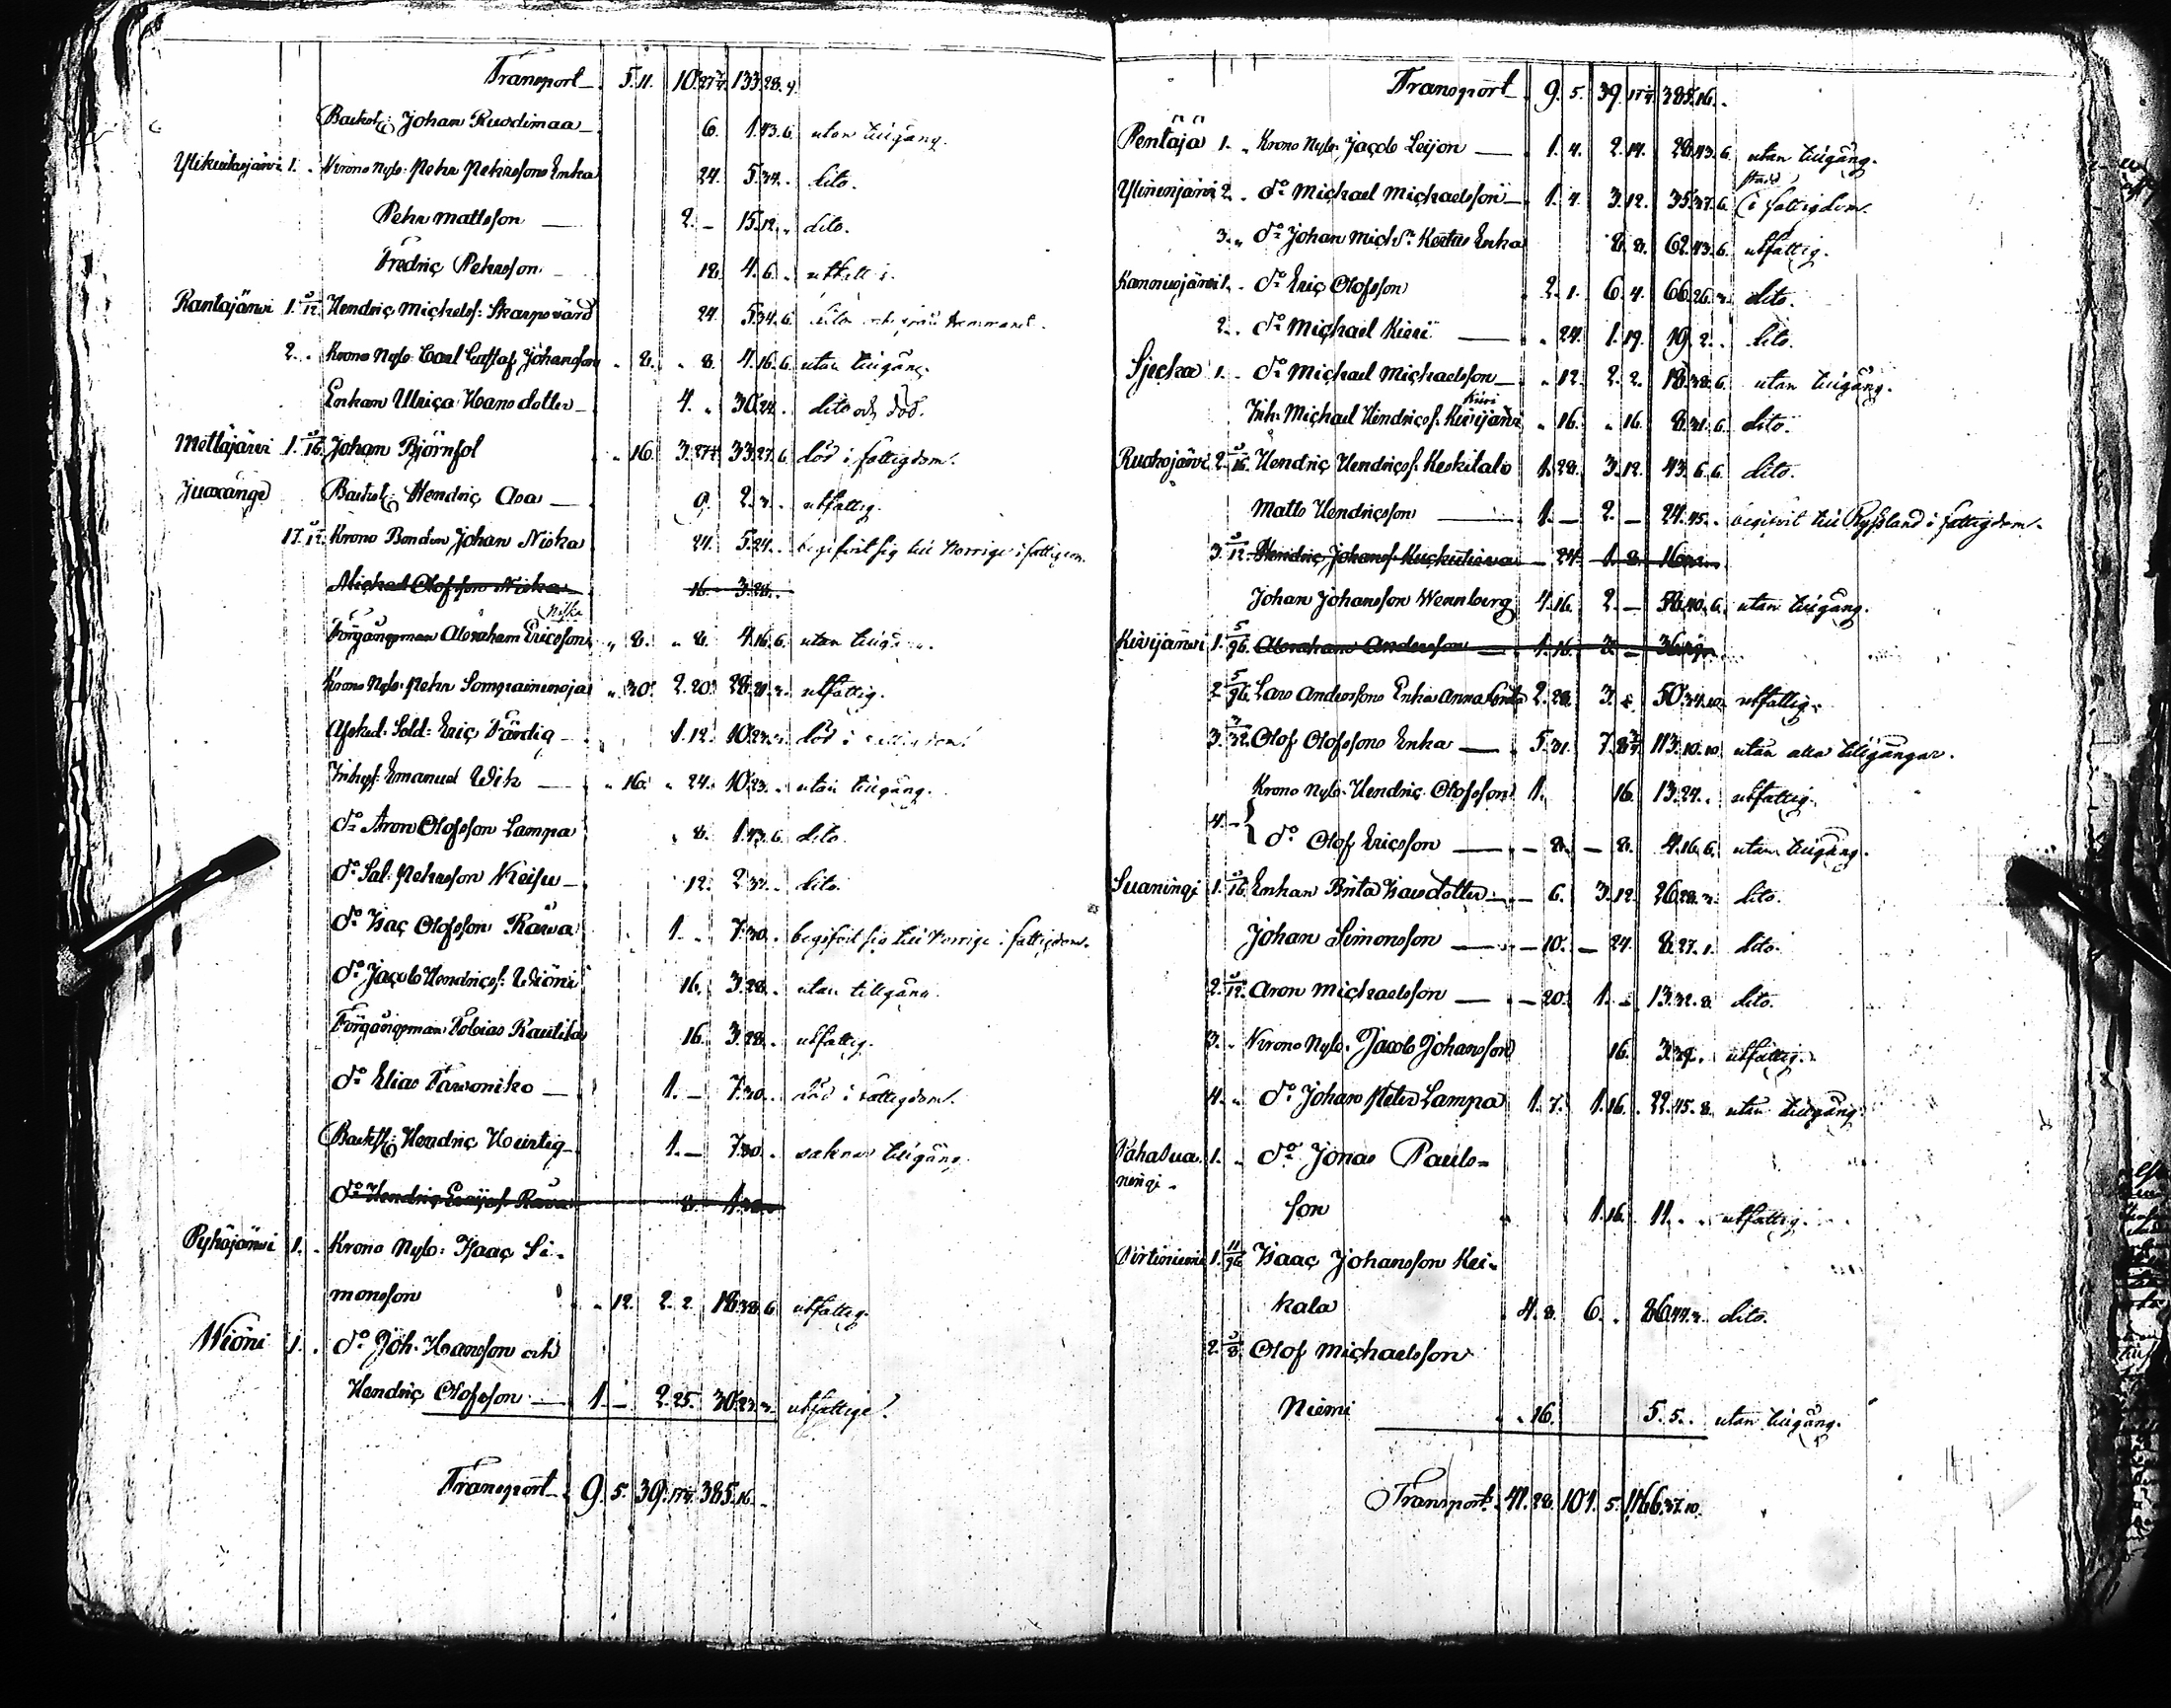 Transport 5. 11. 10. 27¾. 133. 28. 4.
Backst: Johan Ruodimaa 6. 1. 43. 6. utan tillgång.
1. Krono Nyb: Pehr Pehrssons Enka 24. 5. 34. dito.
Pehr Mattsson 2. – 15. 12. dito.
Fredric Pehrsson 18. 4. 6.
Rantajärvi 1. 5/12. Hendric Michelsf: Skarpsvärd 24. 5. 34. 6. dito
2. Krono Nyb: Carl Gustaf Johansson 8. 8. 4. 16. 6. utan tillgång.
Enkan Ulrica Hansdotter 4. 30. 24. dito och död.
Mettäjärvi 1. 5/16. Johan Björnfot 16. 3. 27¾. 33. 27. 6. död i fattigdom.
Juoxänge Backst: Hendric Asa 9. 2. 3. utfattig.
17. 5/12. Krono Bonden Johan Niska 24. 5. 24. begifvit sig till Norrige i fattigdom.
Michael Olofsson Niska 16. 3. 28.
Niska
Förgångsman Abraham Ericsson 8. 8. 4. 16. 6. utan tillgång.
Krono Nyb: Pehr 30. 2. 20. 28. 21. 3. utfattig.
Afsked: Sold: Eric Färdig 1. 12. 10. 23. 3. död i fattigdom.
Inhys: Emanuel Wik 16. 24. 10. 23. utan tillgång.
do Aron Olofsson Lampa 8. 1. 43. 6. dito.
do Sal: Pehrsson Keisu 12. 2. dito.
do Isac Olofsson Rawa 1. 7. 30. begifvit sig till Norrige i fattigdom.
do Jacob Hendricsf: Wiöni 16. 3. 28. utan tillgång.
Förgångsman Tobias Rautila 16. 3. 28. utfattig.
do Elias Tawoniko 1. – 7. 30. död i fattigdom.
Backst: Hendric Heirtig 1. – 7. 30. saknar tillgång.
do Hendric Rawa 8. 1.
Pyhäjärvi 1. Krono Nyb: Isaac Si-
monsson 12. 2. 2. 18. 38. 6. utfattig.
Wiöni 1. do Joh: Hansson och
Hendric Olofsson 1. – 2. 25. 30. 23. 3. utfattige.
Transport 9. 5. 39. 17¾. 385. 16.
Transport 9. 5. 39. 17¾. 385. 16.
Pentäjä 1. Krono Nyb: Jacob Leijon 1. 4. 2. 14. 28. 43. 6. utan tillgång.
Ylinenjärvi 2. do Michael Michaelsson 1. 4. 3. 12. 35. 37. 6. i fattigdom.
3. do Johan Michs: Kertus Enka 8. 8. 62. 43. 6. utfattig.
Kannusjärvi 1. do Eric Olofsson 2. 1. 6. 4. 66. 26. 3. dito.
2. do Michael Kieri 24. 1. 19. 19. 2. dito.
Sjecka 1. do Michael Michaelsson 12. 2. 2. 18. 38. 6. utan tillgång.
Inh: Michael Hendricsf: Kivijärvi 16. 16. 8. 31. 6. dito.
Ruokojärvi 2. 5/16. Hendric Hendricsf: Keskitalo 1. 28. 3. 12. 43. 6. 6. dito.
Matts Hendricsson 1. – 2. – 24. 45. begifvit till Ryssland i fattigdom.
3. 5/12. Hendric Johansf: 24. 1. 8. 16.
Johan Johansson Wennberg 4. 16. 2. – 56. 40. 6. utan tillgång.
Kivijärvi 1. 5/96. Abraham Andersson 1. 16. 2. – 36.
2. 5/96. Lars Anderssons Enka Anna Brita 2. 28. 3. 8. 50. 34. 10. utfattig.
3. 7/32. Olof Olofssons Enka 5. 31. 7. 8¾. 113. 10. 10. utan alla tillgångar.
Krono Nyb: Hendric Olofsson 1. 16. 13. 24. utfattig.
4. do Olof Ericsson – 8. – 8. 4. 16. 6. utan tillgång.
Suaningi 1. 5/16. Enkan Brita Isacsdotter – 6. 3. 12. 26. 28. 3. dito.
Johan Simonsson – 10. – 24. 8. 27. 1. dito.
2. 5/12. Aron Michaelsson – 20. 1. – 13. 32. 8. dito.
3. Krono Nyb: Jacob Johansson 16. 3. utfattig.
4. do Johan Peter Lampa 1. 7. 1. 16. 22. 45. 8. utan tillgång.
Pahasua- 1. do Jonas Pauls-
ningi son 1. 16. 11. utfattig.
Pirtiniemi 1. 11/96 Isaac Johansson Kei-
kala 4. 8. 6. 86. 44. 3. dito.
2. 5/8. Olof Michaelsson
Niemi 16. 5. 5. utan tillgång.
Transport 41. 28. 101. 5. 1166. 37. 10.